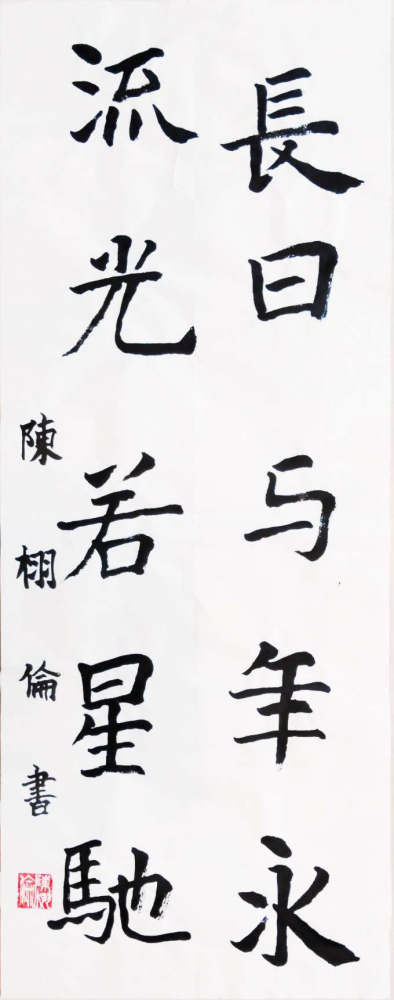 長日与年永
流光若星馳
陳栩倫書